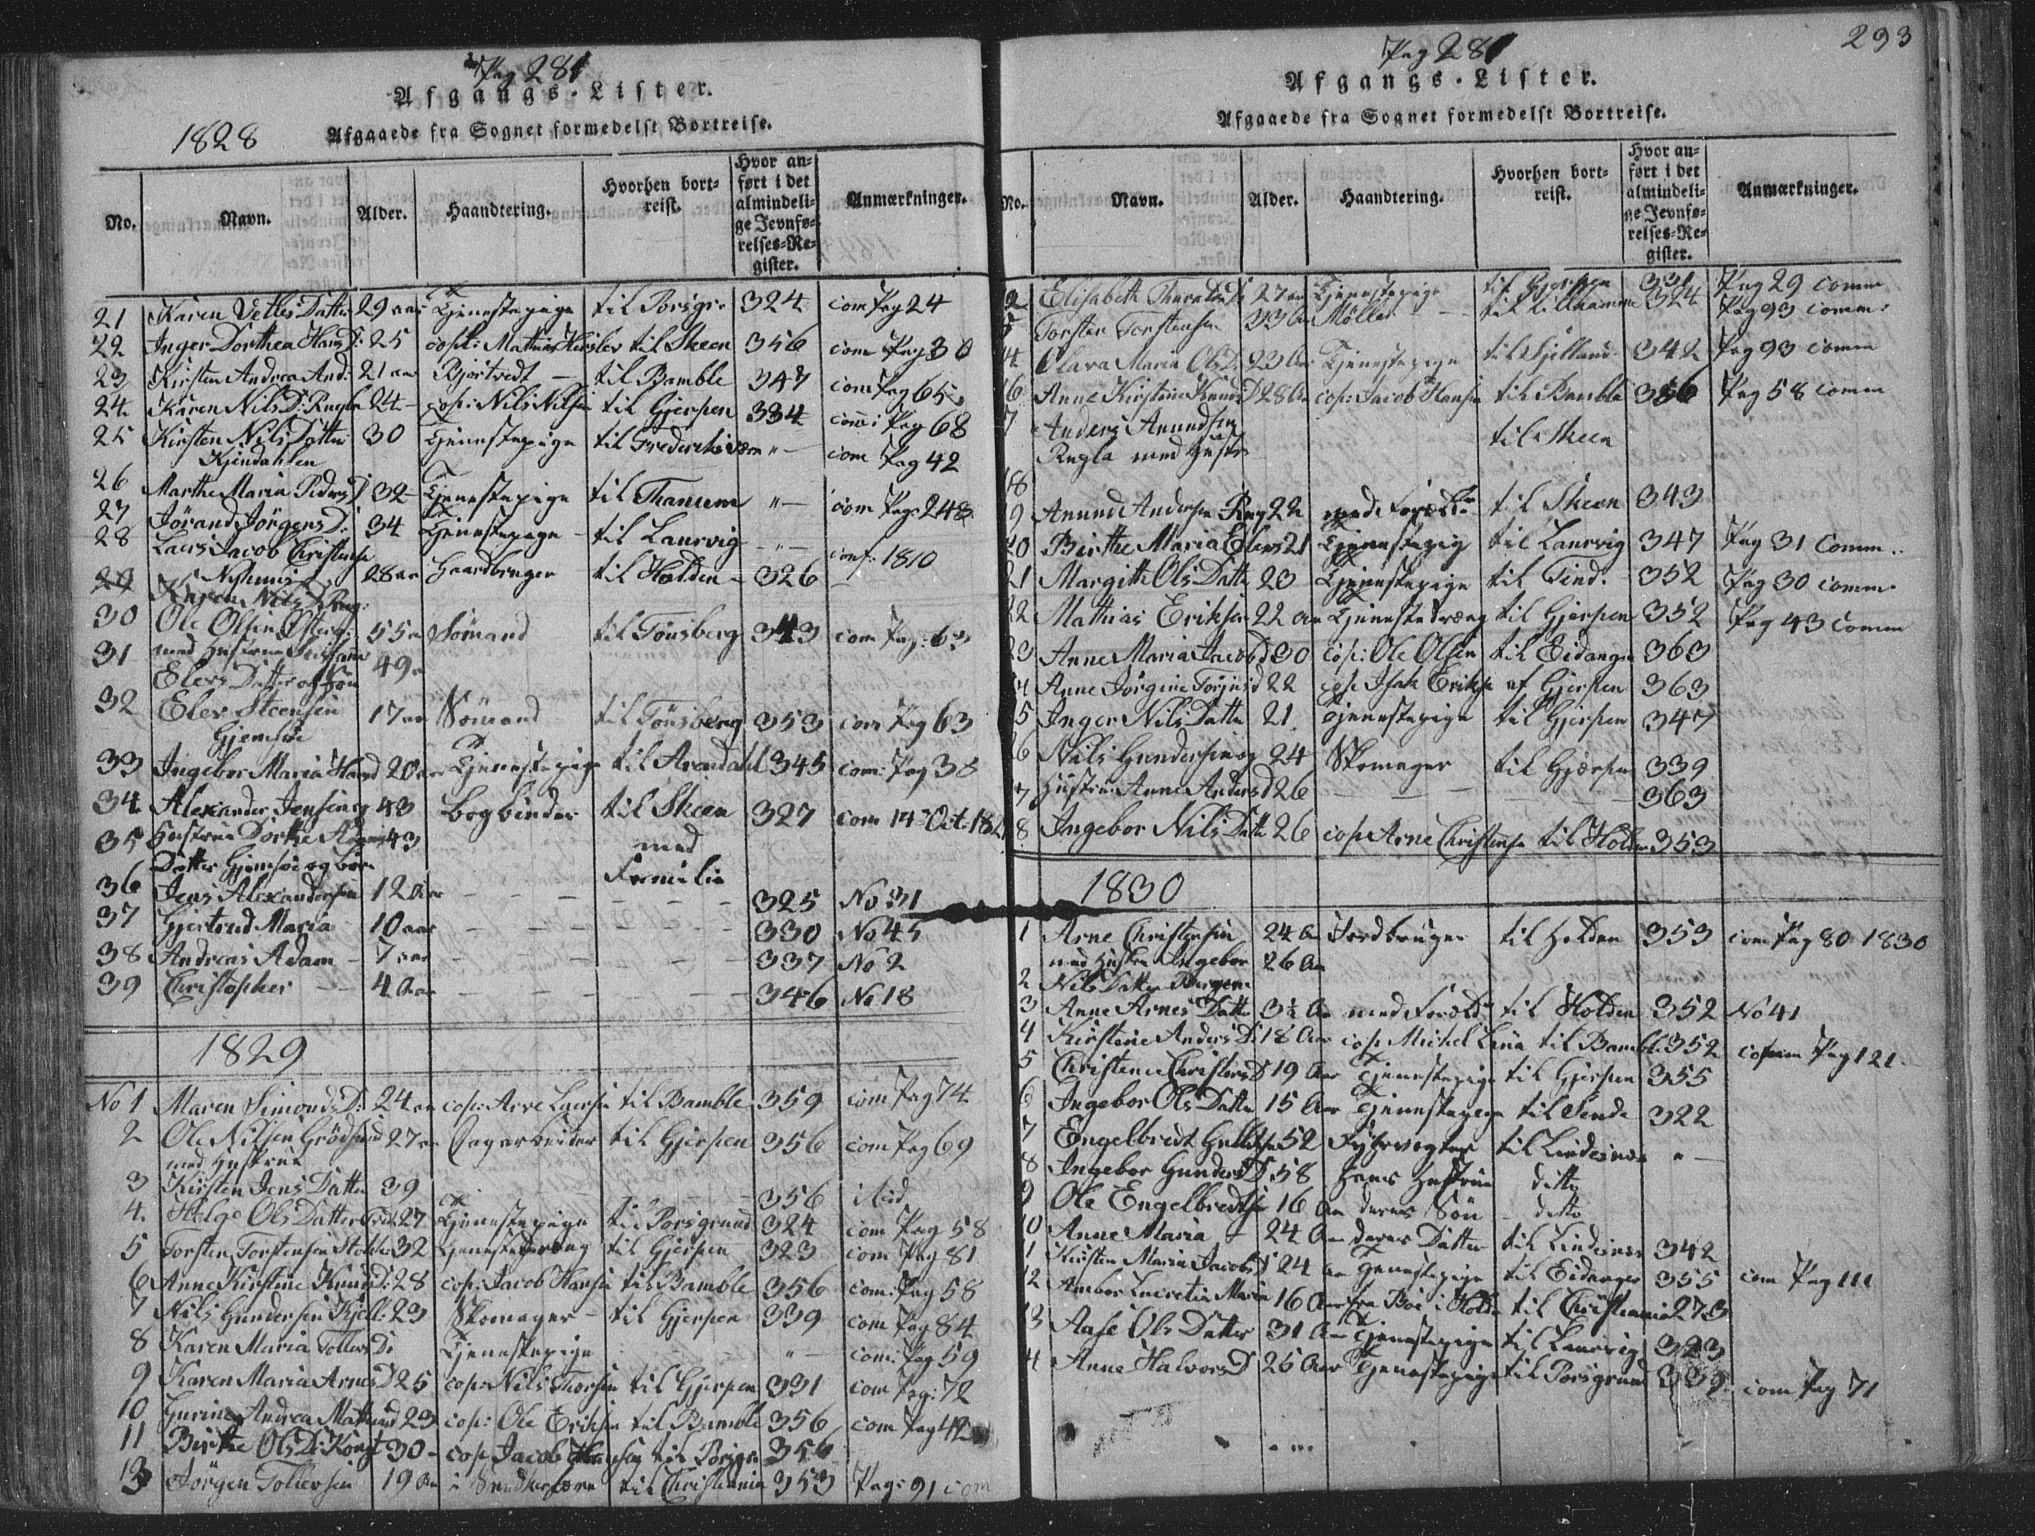 Pag 281
Afgangs-Lister.
Afgaaede fra Sognet formedelst Bortreise.
1828
No. Navn. Alder. Haandtering. Hvorhen bortreist. Hvor anført i det almindelige Jevnførelses-Register. Anmærkninger.
21 Karen Vetles Datter 29 aar Tjenestepige til Porsgr: 324 com Pag 24
22 Inger Dorthea Hans D: 25 cop: Mathias til Skeen 356 com Pag 30
23 Kirsten Andrea And: 21 aar Bjørtvedt til Bamble 347 com Pag 65
24 Karen Nils D: Rugla 24 cop: Nils Nilsen til Gjerpen 334 com: Pag 68
25 Kirsten Nils Datter 30 Tjenestepige til Frederiksværn " com Pag 42
Kjendahlen
26 Marthe Maria Peders D 32 Tjenestepige til Thanum " com Pag: 248
27 Jørand Jørgens D: 34 Tjenestepige til Laurvig "
28 Lars Jacob Christensen 28 aar Haandbruger til Holden 326 conf: 1810
Nyhuus
29 Karen Nils D Rug:
30 Ole Olsen 55 Sømand til Tønsberg 343 com Pag: 63
31 med Hustrue 49
Elers Datter og Søn
32 Elev Steensen 17 aar Sømand til Tønsberg 353 com Pag 63
Gjemsøe
33 Ingebor Maria Hans d 20 aar Tjenestepige til Arendahl 345 com: Pag 38
34 Alexander Jensen og 43 Bogbinder til Skeen 327 com 14 Oct. 182
35 Hustrue Dorthe Adams 43 med
Datter Gjemsøe og Børn Familie
36 Jens Alexandersen 12 Aar 325 No 31
37 Gjertrud Maria 10 aar 330 No 45
38 Andreas Adam 7 aar 337 No 2
39 Christopher 4 Aar 346 No 18
1829
No 1 Maren Simons D: 24 aar cop: Arve Larsen til Bamble 359 com Pag 74
2 Ole Nilsen Grødsund 27 aar Dagarbeider til Gjerpen 356 com Pag 69
med Hustrue
3 Kirsten Jens Datter 39 356 ibid
4. Helge Ols Datter 27 Tjenestepige til Porsgrund 324 com Pag 58
5 Torsten Torstensen 32 Tjenestedreng til Gjerpen 323 com Pag 81
6 Anne Kirstine Knuds D: 28 cop: Jacob Hansen til Bamble 356 com: Pag 58
7 Nils Gundersen Kjell: 23 Skomager til Gjerpen 339 com Pag 84
8 Karen Maria Tollevs D: Tjenestepige " com: Pag 59
9 Karen Maria Arnes D 25 cop: Nils Thorsen til Gjerpen 331 com Pag: 72
10 Gurine Andrea 23 cop: Ole Eriksen til Bamble 356 com Pag 42
11 Birthe Ols D: Kongt 30 cop Jacob Hansen til Porsgr: 356
13 Jørgen Tollevsen 19 Aar i til Christiania 353 Pag: 91 com
Pag 281
293
Afgangs-Lister.
Afgaaede fra Sognet formedelst Bortreise.
No. Navn. Alder. Haandtering. Hvorhen bortreist. Hvor anført i det almindelige Jevnførelses-Register. Anmærkninger.
Elisabeth 27 aar Tjenestepige til Gjerpen 331 Pag 29 comm
5 Torsten Torstensen 33 Aar Møller til Lillhammer 324 Pag 93 comm:
4 Olava Maria Ols D: 23 Aar Tjenestepige til Sjelland 342 Pag 93 comm
16 Anne Kirstine Knuds D 28 Aar cop: Jacob Hansen til Bamble 356 Pag 58 comm
7 Anders Anundsen til Skeen
Rugla med Hustr:
18
19 Anund Andersen Rug 22 med Foræld: til Skeen 343
20 Birthe Maria Elers 21 Tjenestepig til Laurvig 347 Pag 31 Comm..
21 Margith Ols Datter 23 Tjenestepige til Tind. 352 Pag 30 comm
22 Mathias Eriksen 22 Aar Tjenestedreng til Gjerpen 352 Pag 43 comm
23 Anne Maria Jacobs d 30 cop: Ole Olsen til Eidanger 363
24 Anne Jørgine 22 cop Isak Eriks: af Gjerpen 363
5 Inger Nils Datter 21 Tjenestepige til Gjerpen 347
26 Nils Gundersen og 24 Skomager til Gjerpen 339
7 Hustrue Anne Anders d 26 363
8 Ingebor Nils Datter 26 cop Arne Christensen til Holden 353
1830
1 Arne Christensen 24 Aar Jordbruger til Holden 353 com Pag 80 1830
med Hustru Ingebor 26 Aar
2 Nils Datter
3 Anne Arnes Datter 3½ Aar med Foræld: til Holden 352 No 41
4 Kirstine Anders D: 18 Aar cop Michel til Bamble 352 comm Pag 121.
5 Christence Christens D 19 Aar Tjenestepige til Gjerpen 355
6 Ingebor Ols Datter 15 Aar Tjenestepige til 322
7 Engelbredt 52 Fyhrvogter til Lindesnes "
8 Ingebor Gunders D 58 Hans Hustrue ditto
9 Ole Engelbredtsen 16 Aar deres Søn ditto
10 Anne Maria 24 Aar deres Datter til Lindesnes 342
1 Kirsten Maria Jacobs D 24 Aar Tjenestepige til Eidanger 355 com Pag 111
12 Ambor Lucretia Maria 16 Aar fra Bøe i Holden til Christiania 273
13 Aase Ols Datter 31 Aar Tjenestepige til Laurvig 323
4 Anne Halvors D 26 Aar Tjenestepige til Porsgrund 339 com Pag 71